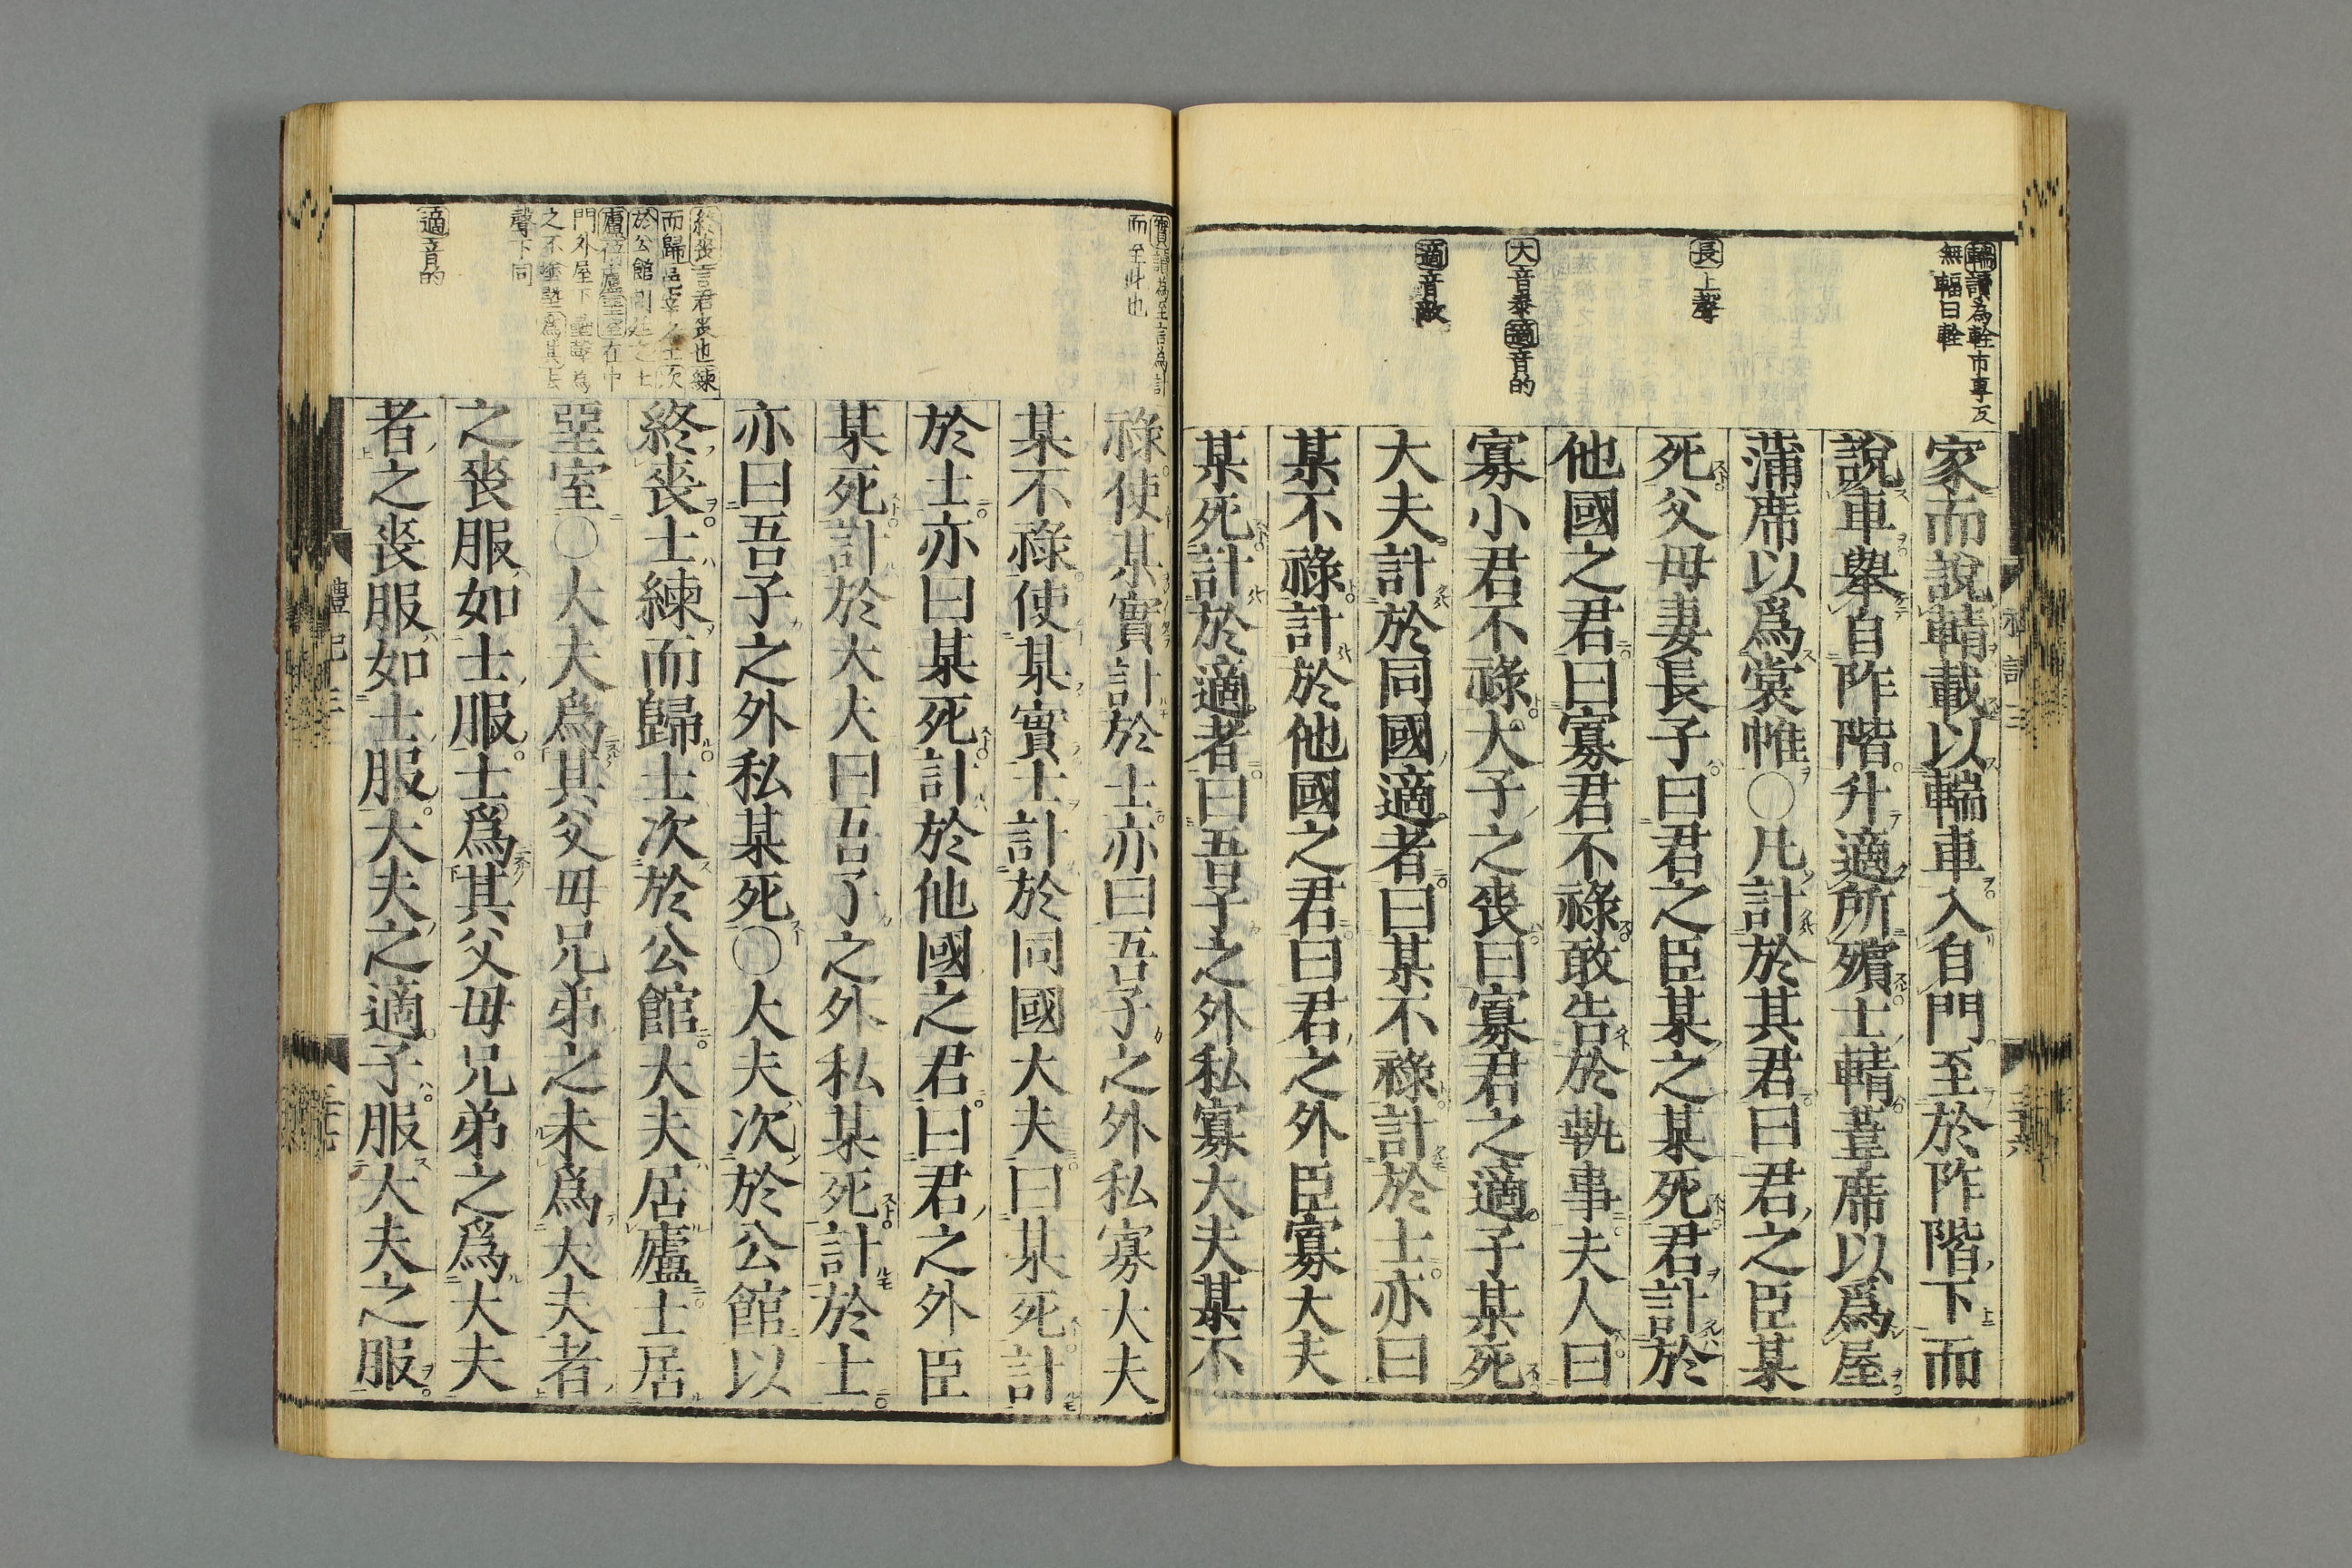 輲讀為輇市專反
無輻曰輇
長上聲
大音泰適音的
適音敵
家而說輤載以輲車入自門至於阼階下而
說車舉自阼階升適所殯士輤葦席以爲屋
蒲席以爲裳帷○凡訃於其君曰君之臣某
死父母妻長子曰君之臣某之某死君訃於
他國之君曰寡君不祿敢告於執事夫人曰
寡小君不祿大子之喪曰寡君之適子某死
大夫訃於同國適者曰某不祿訃於士亦曰
某不祿訃於他國之君曰君之外臣寡大夫
某死訃於適者曰吾子之外私寡大夫某不
禮記三
三十六
實讀為至言為訃
而至此也
終喪言君喪也練
而歸邑宰之士次
於公館朝廷之士
廬倚廬堊室在中
門外屋下壘墼為
之不塗塈為其去
聲下同
適音的
祿使某實訃於士亦曰吾子之外私寡大夫
某不祿使某實士訃於同國大夫曰某死訃
於士亦曰某死訃於他國之君曰君之外臣
某死訃於大夫曰吾子之外私某死訃於士
亦曰吾子之外私某死○大夫次於公館以
終喪士練而歸士次於公館大夫居廬士居
堊室○大夫爲其父母兄弟之未爲大夫者
之喪服如士服士爲其父母兄弟之爲大夫
者之喪服如士服大夫之適子服大夫之服
禮記三
三十七